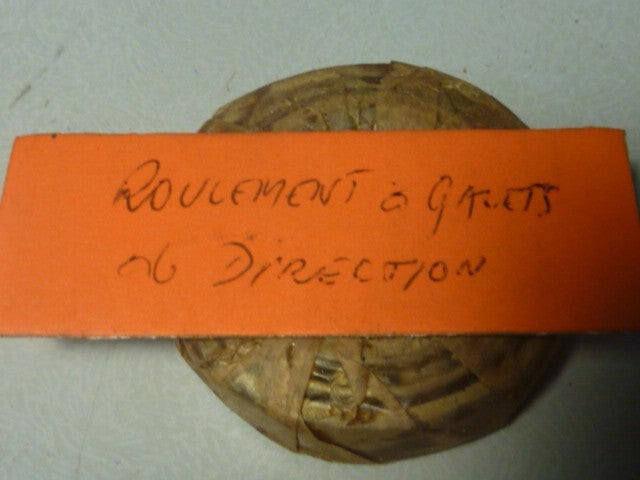 ROULEMENT à GALETS
de DIRECTION